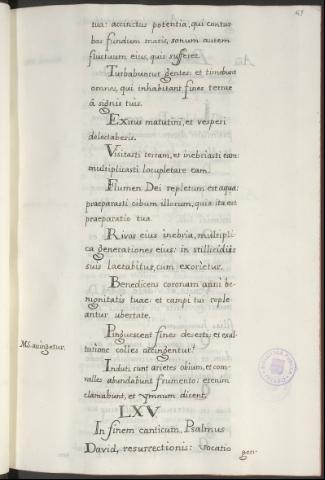 tua: accinctus potentia, qui contur
bas fundum maris, sonum autem
fluctuum eius, quis sufferet.
Turbabuntur gentes: et timebunt
omnes, qui inhabitant fines terrae
á signis tuis.
Exitus matutini, et vesperi
delectaberis.
Visitasti terram, et inebriasti eam:
multiplicasti locupletare eam.
Flumen Dei repletum est aqua:
praeparasti cibum illorum, quia ita est
praeparatio tua.
Rivos eius inebria, multipli
ca generationes eius: in stillicidiis
suis laetabitur, cum exorietur.
Benedicens coronam anni be-
nignitatis tuae: et campi tui reple
antur ubertate.
Pinguescent fines deserti, et exul-
tatione colles accingentur.
Ms. acingetur.
Induti sunt arietes obium, et con-
valles abundabunt frumento: etenim
clamabunt, et ymnum dicent.
LXV
In finem canticum Psalmus
David, resurrectionis: vocatio
gen-